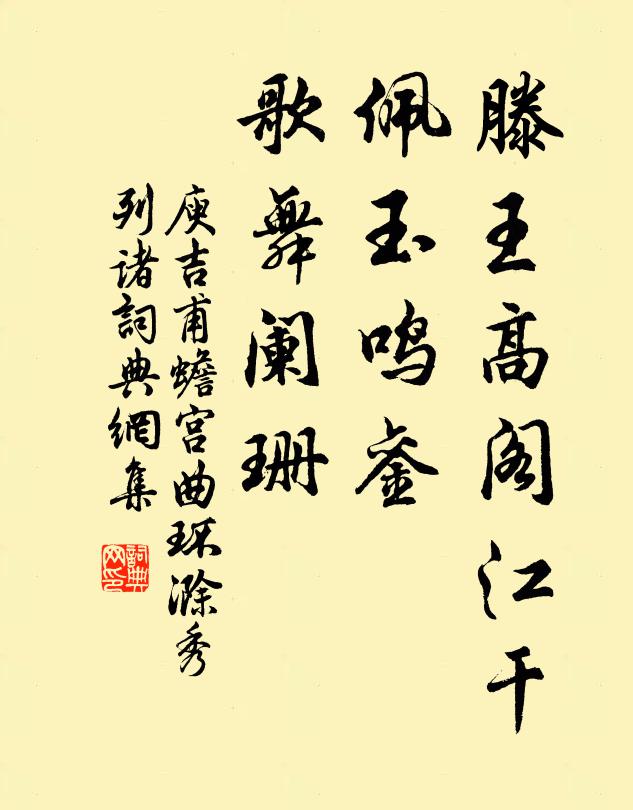 滕王高阁江干
佩玉鸣銮
歌舞阑珊
庾吉甫蟾宫曲环滁秀
列诸詞典網集
詞典网印